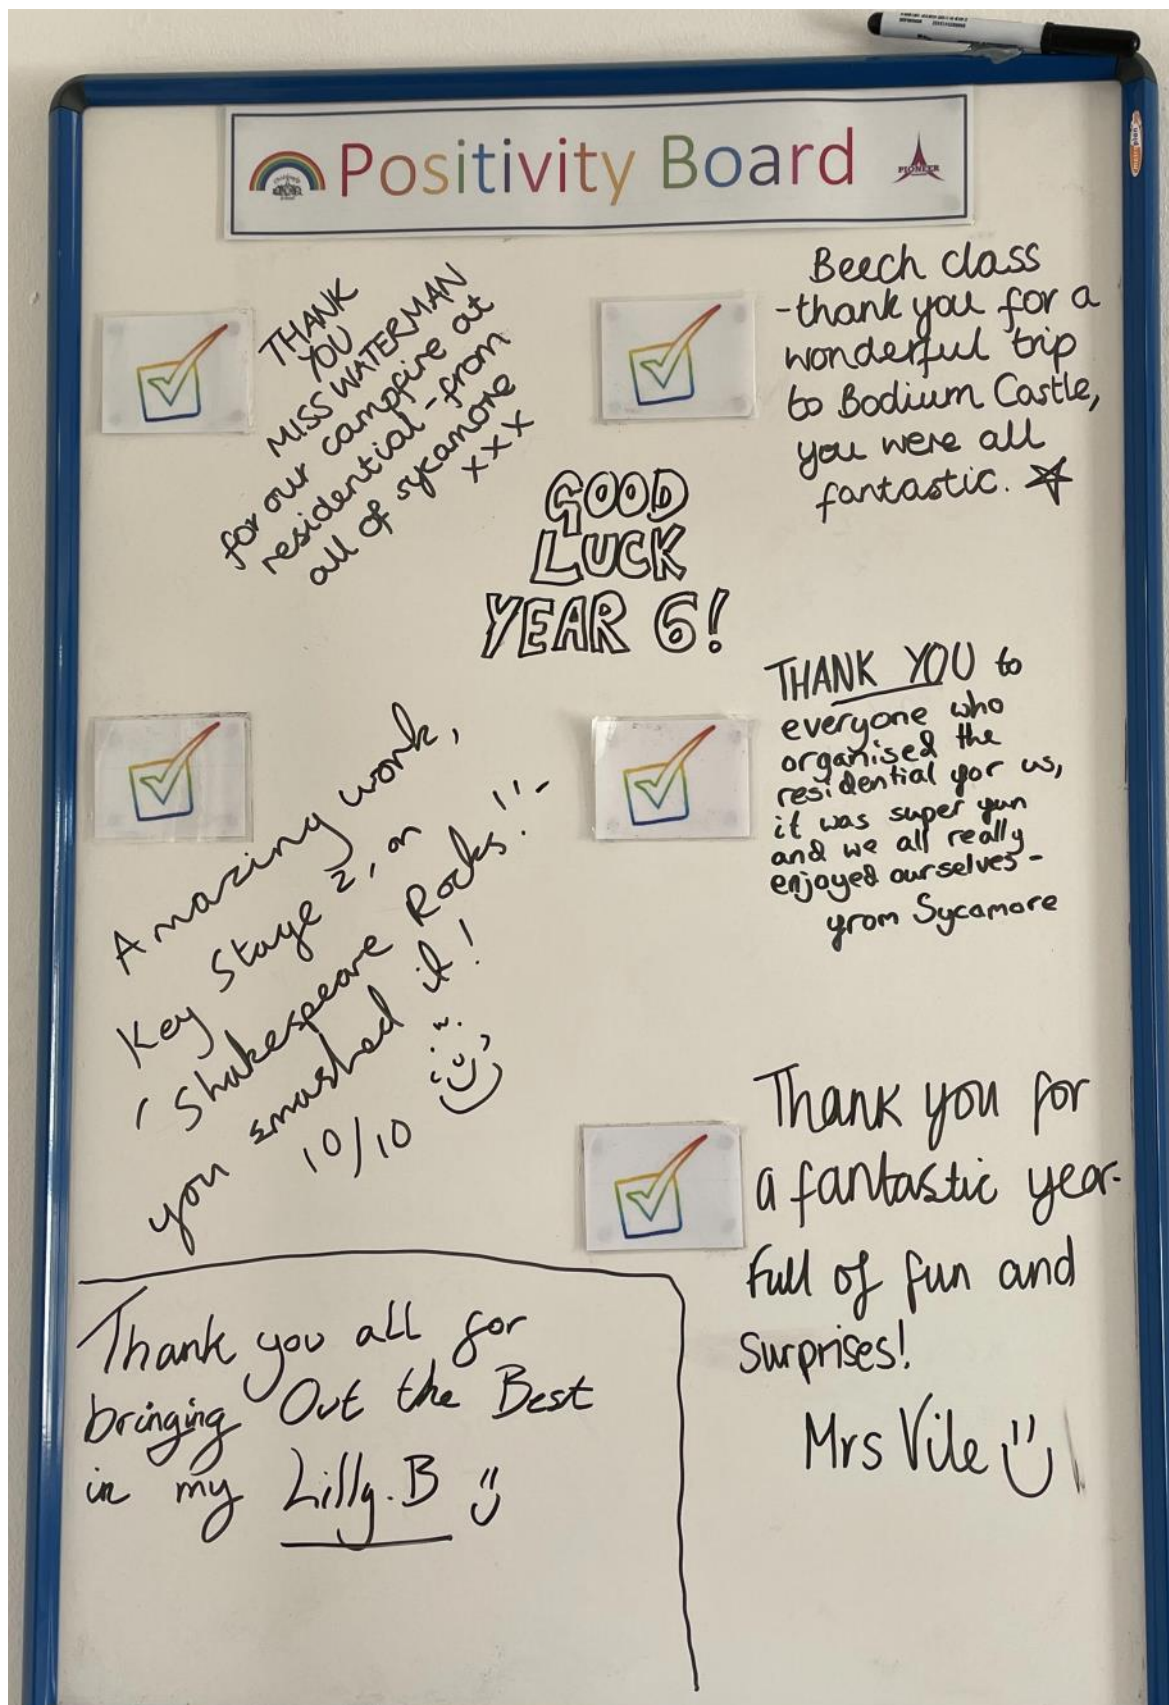 Positivity Board
PIONEER
THANK
YOU
MISS WATERMAN
for our campfire at
residential - from
all of sycamore
xxx
Beech class
-thank you for a
wonderful trip
to Bodium Castle,
you were all
fantastic.
GOOD
LUCK
YEAR 6!
Amazing work,
Key Stage 2, on
'Shakespeare Rocks!''-
you smashed it!
10/10
THANK YOU to
everyone who
organised the
residential for us,
it was super fun
and we all really
enjoyed ourselves-
from Sycamore
Thank you for
a fantastic year.
Full of fun and
surprises!
Mrs Vile
Thank you all for
bringing Out the Best
in my Lilly.B